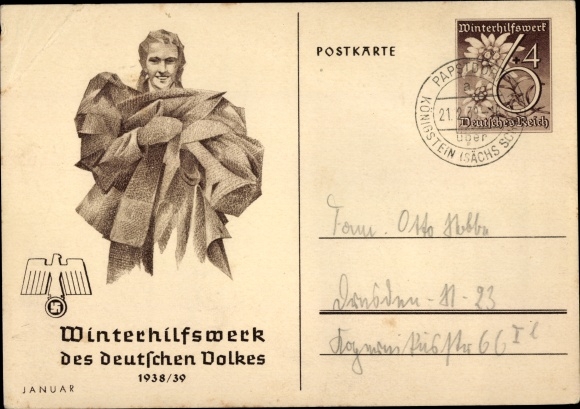 POSTKARTE
Winterhilfswerk
6+4
Deutsches Reich
PAPSTDORF
21.2.
über
KÖNIGSTEIN (SÄCHS SCHW
Fam. Otto
Dresden-N-23
Kopernikusstr 66 I
Winterhilfswerk
des deutschen Volkes
1938/39
JANUAR